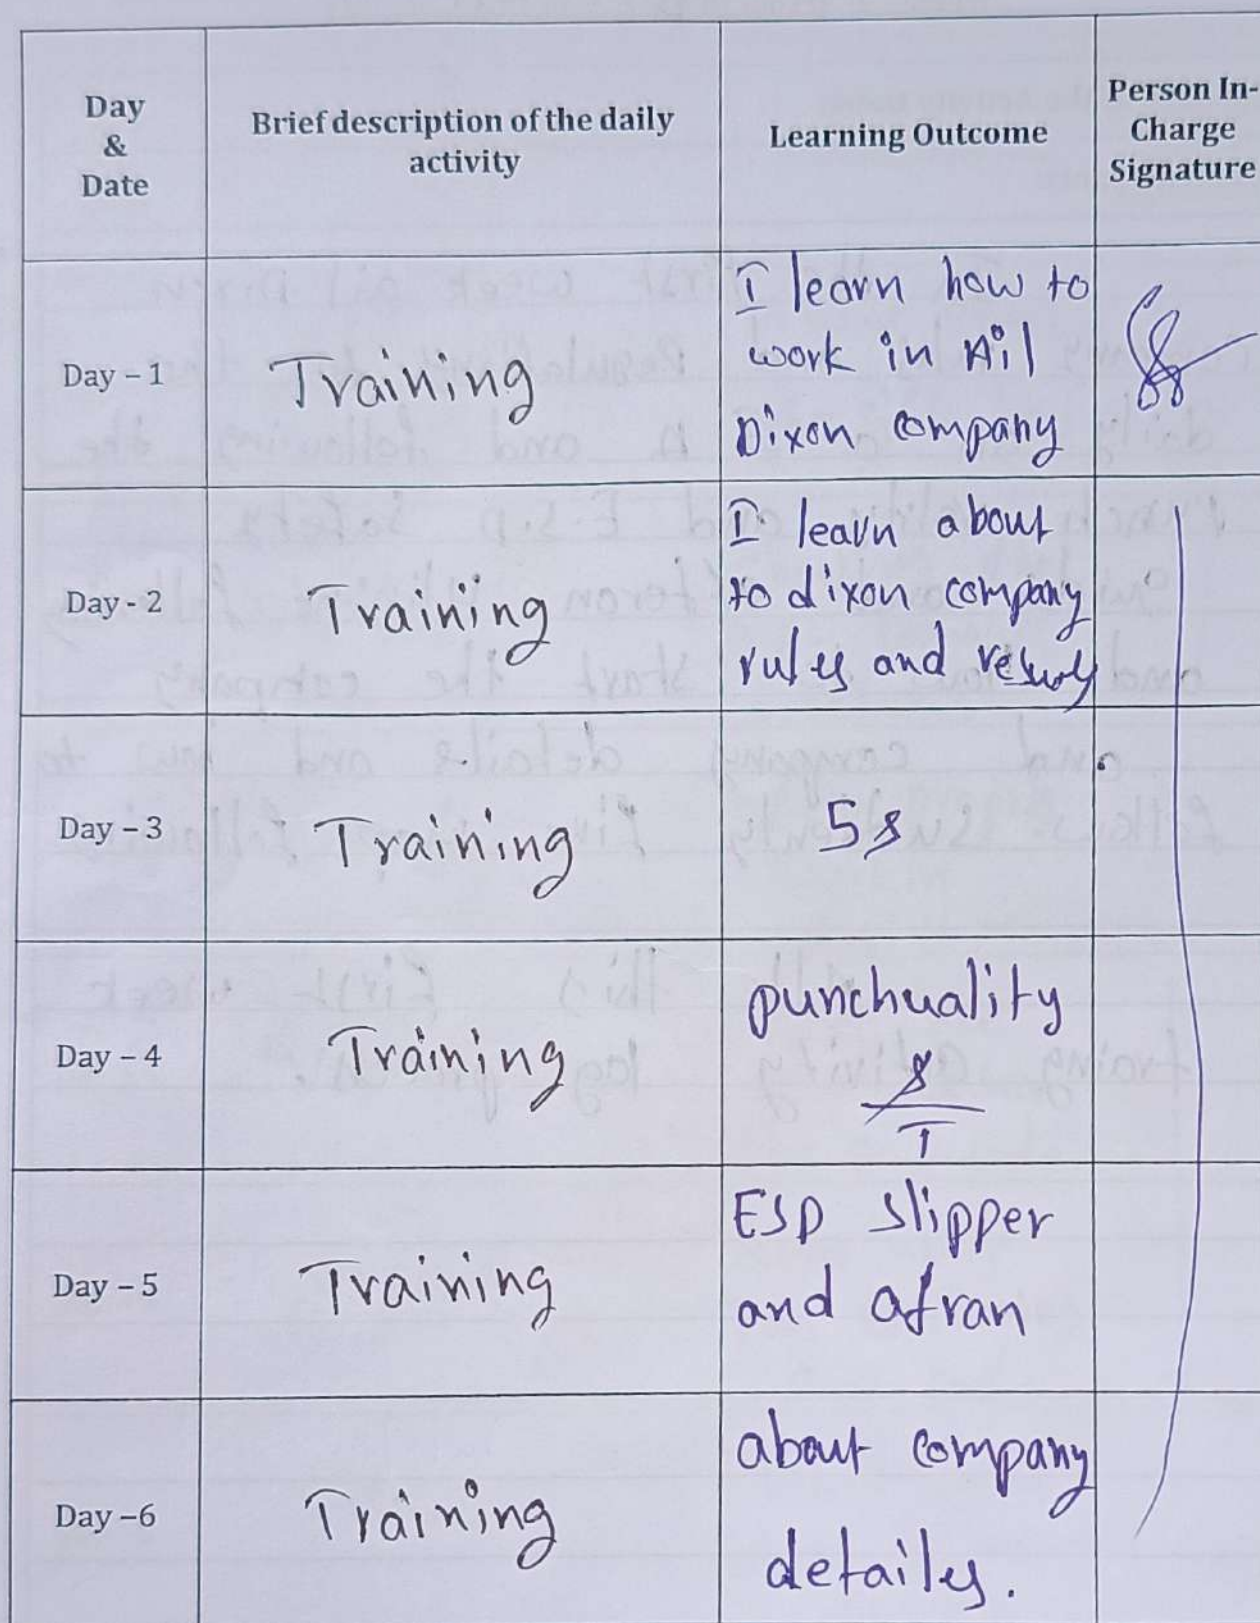 Day
&
Date
Brief description of the daily
activity
Learning Outcome
Person In-
Charge
Signature
Day – 1
Training
I learn how to
work in Ail
Dixon company
Day - 2
Training
I learn about
to dixon company
rules and
Day – 3
Training
5s
Day – 4
Training
punchuality
Day – 5
Training
ESD slipper
and afran
Day –6
Training
about company
detailes.